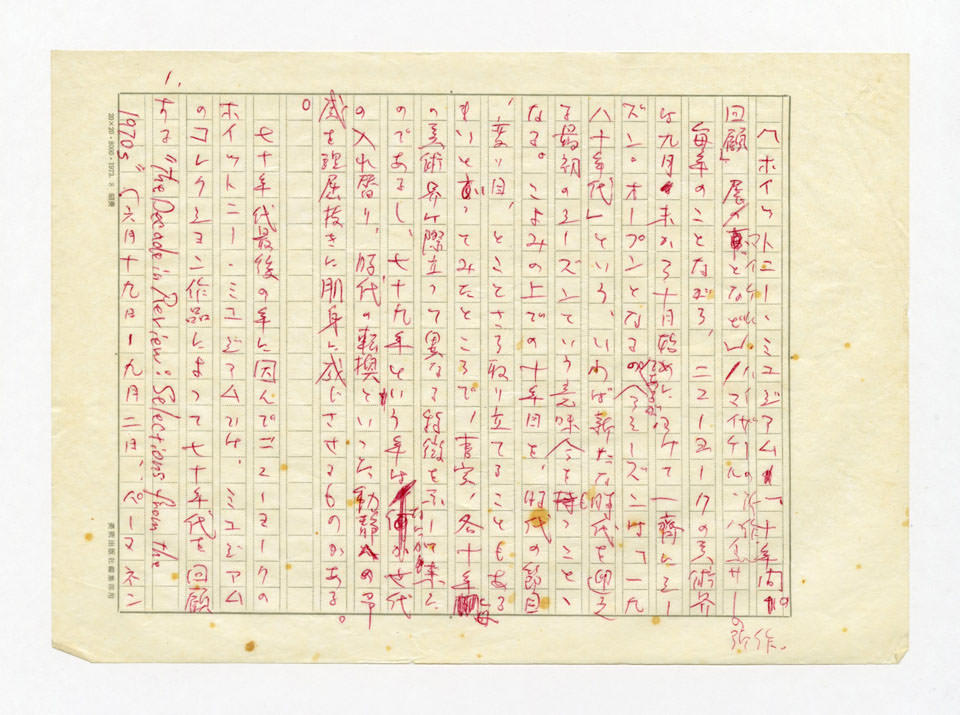 ヘホイットニー・ミュジアム「十年間の
回顧」展
毎年のことながら、ニューヨークの美術界
は九月末から十月始めにかけて一齊にシー
ズン・オープンとなるのシーズンは「一九
八十年代」という、いわば新たな時代を迎え
る最初のシーズンという意味合を持つこと、
なる。こよみの上での十年目を、時代の節目
、変り目、とことさら取り立てることもある
まいと思ってみたところで、事実、各十年毎
の美術界は際立って異なる特徴を示して来た
のであるし、七十九年という年は世代
の入れ替り、時代の転換といった動静への予
感を理屈抜きに肌身に感じさせるものがある
。
七十年代最後の年に因んでニューヨークの
ホイットニー・ミュジアムでは、ミュジアム
のコレクション作品によって七十年代を回顧
する "The Decade in Review: Selections from the
1970s" (六月十九日-九月二日、パーマネン
1.
20×20・5000・1973. 8
の新作.